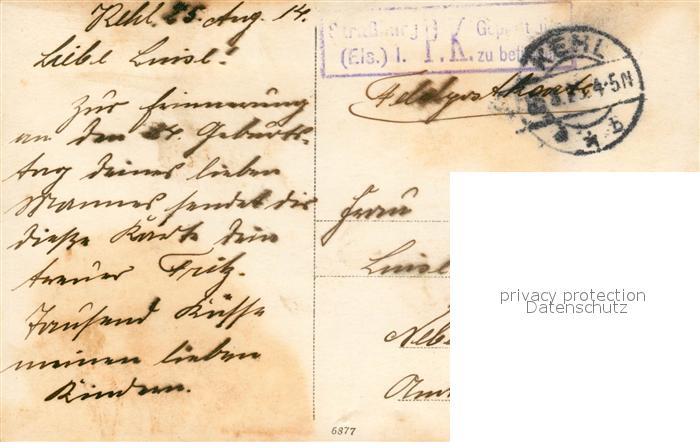 Kehl, 25. Aug. 14.
Liebe Luise!
Zur Erinnerung
an den 34. Geburts-
tag deines lieben
Mannes sendet dir
diese Karte dein
treuer Fritz.
Tausend Küsse
meinen lieben
Kindern.
Straßburg Geprüft
(Els.) I. P.K. zu bef
KEHL
4-5N
* b
Feldpostkarte
Frau
Luise
privacy protection
Datenschutz
6877